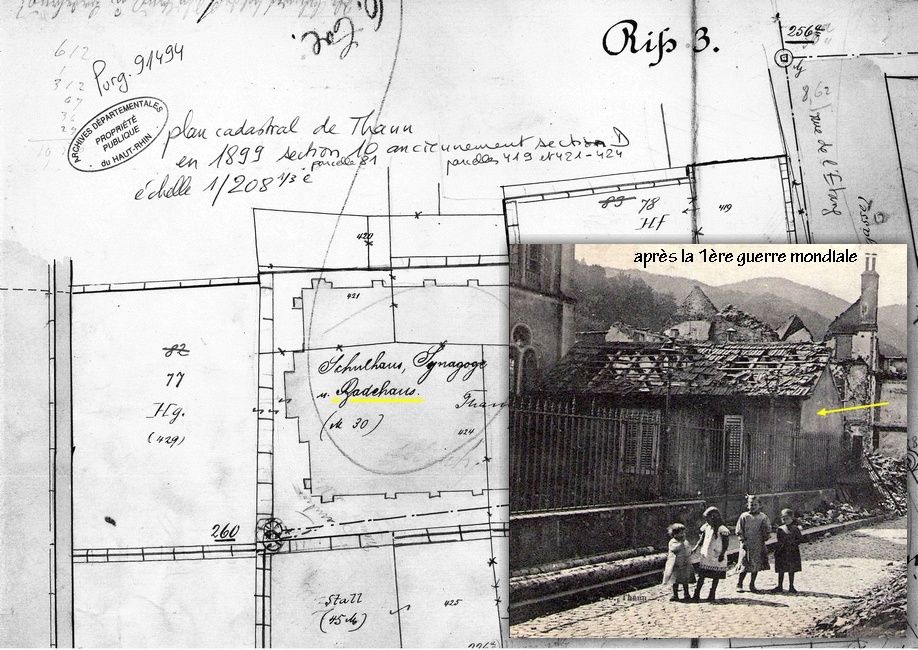 Riß 3.
256a
Purg. 91494
ARCHIVES DÉPARTEMENTALES
PROPRIÉTÉ
PUBLIQUE
du HAUT-RHIN
plan cadastral de Thann
en 1899 section 10 anciennement section D
parcelle 81
parcelles 419 et 421-424
échelle 1/208 1/3 è
8,62
rue de l'Etang
83 78
Hf
419
420
421
après la 1ère guerre mondiale
82
77
Hg.
(429)
Schulhaus, Synagoge
u. Badehaus.
(№ 30)
Thann
424
260
Stall
(45 №)
425
Thann